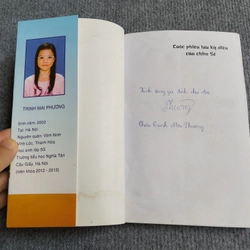 TRỊNH MAI PHƯƠNG
Sinh năm: 2002
Tại: Hà Nội
Nguyên quán: Vĩnh Ninh
Vĩnh Lộc, Thanh Hóa
Học sinh lớp 5G
Trường tiểu học Nghĩa Tân
Cầu Giấy, Hà Nội
(niên khóa 2012 - 2013)
Cuộc phiêu lưu kỳ diệu
của chấm Sẻ
Kính tặng gia đình
Phương
Trịnh Mai Phương